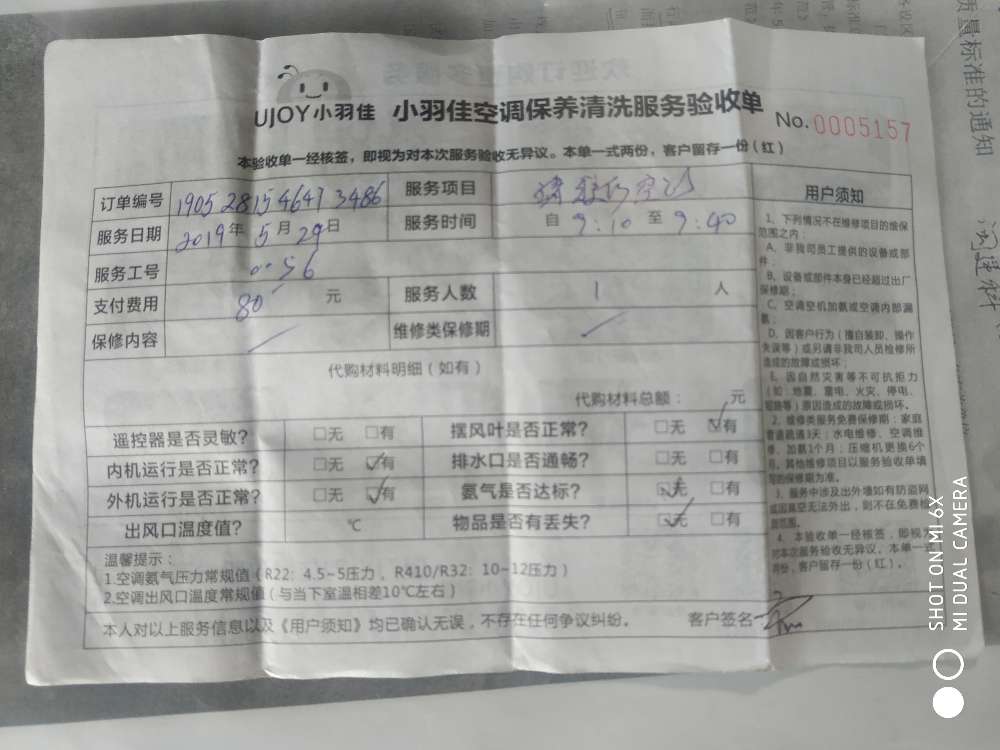 UJOY小羽佳 小羽佳空调保养清洗服务验收单 No.0005157
本验收单一经核签，即视为对本次服务验收无异议。本单一式两份，客户留存一份（红）
订单编号 190528154647 3486 服务项目
服务日期 2019年5月29日 服务时间 自 9:10 至 9:40
服务工号 0056
支付费用 80 元 服务人数 1 人
保修内容 维修类保修期
代购材料明细（如有）
代购材料总额： 元
遥控器是否灵敏? □无 □有 摆风叶是否正常? □无 ☑有
内机运行是否正常? □无 ☑有 排水口是否通畅? □无 □有
外机运行是否正常? □无 ☑有 氨气是否达标? ☑无 □有
出风口温度值? ℃ 物品是否有丢失? ☑无 □有
温馨提示：
1.空调氨气压力常规值（R22：4.5~5压力，R410/R32：10~12压力）
2.空调出风口温度常规值（与当下室温相差10℃左右）
本人对以上服务信息以及《用户须知》均已确认无误，不存在任何争议纠纷。 客户签名
用户须知
1、下列情况不在维修项目的维保
范围之内：
A、非我司员工提供的设备或部
件；
B、设备或部件本身已经超过出厂
保修期；
C、空调空机加氨或空调内部漏
氨；
D、因客户行为（擅自装卸、操作
失误等）或另请非我司人员检修所
造成的故障或损坏；
E、因自然灾害等不可抗拒力
（如：地震、雷电、火灾、停电、
短路等）原因造成的故障或损坏。
2、维修类服务免费保修期：家庭
管道疏通3天；水电维修、空调维
修、加氨1个月；压缩机更换6个
月，其他维修项目以服务验收单填
写的保修期为准。
3、服务中涉及出外墙如有防盗网
或因真空无法外出，则不在免费
范围。
4、本验收单一经核签，即视为
对本次服务验收无异议。本单一
两份，客户留存一份（红）。
质量标准的通知
SHOT ON MI 6X
MI DUAL CAMERA